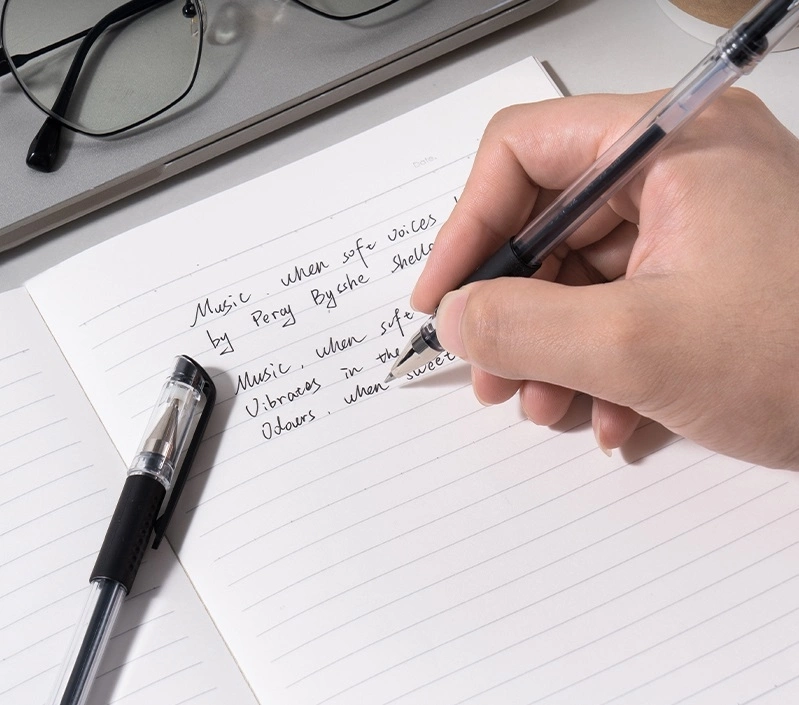 Date.
Music, when soft voices
by Percy Bysshe Shelle
Music, when soft
Vibrates in the
Odours, when sweet